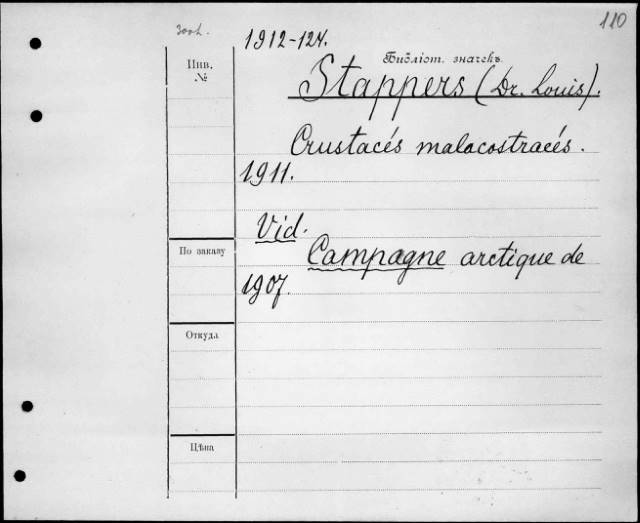 110
1912-124.
Инв.
№
Библіот. значекъ
Stappers (Dr. Louis).
Crustacés malacostracés.
1911.
Vid.
По заказу
Campagne arctique de
1907.
Откуда
Цѣна